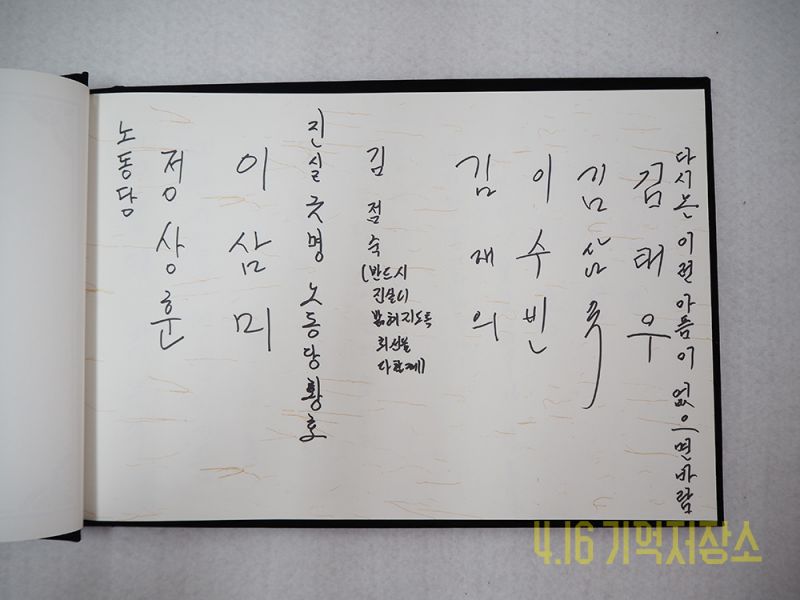 다시는 이런 아픔이 없으면 바람
김태우
김삼
이수빈
김재의
김점숙
(반드시
진실이
밝혀지도록
최선을
다할께)
진실 긋명 노동당 황호
이삼미
정상훈
노동당
4.16 기억저장소